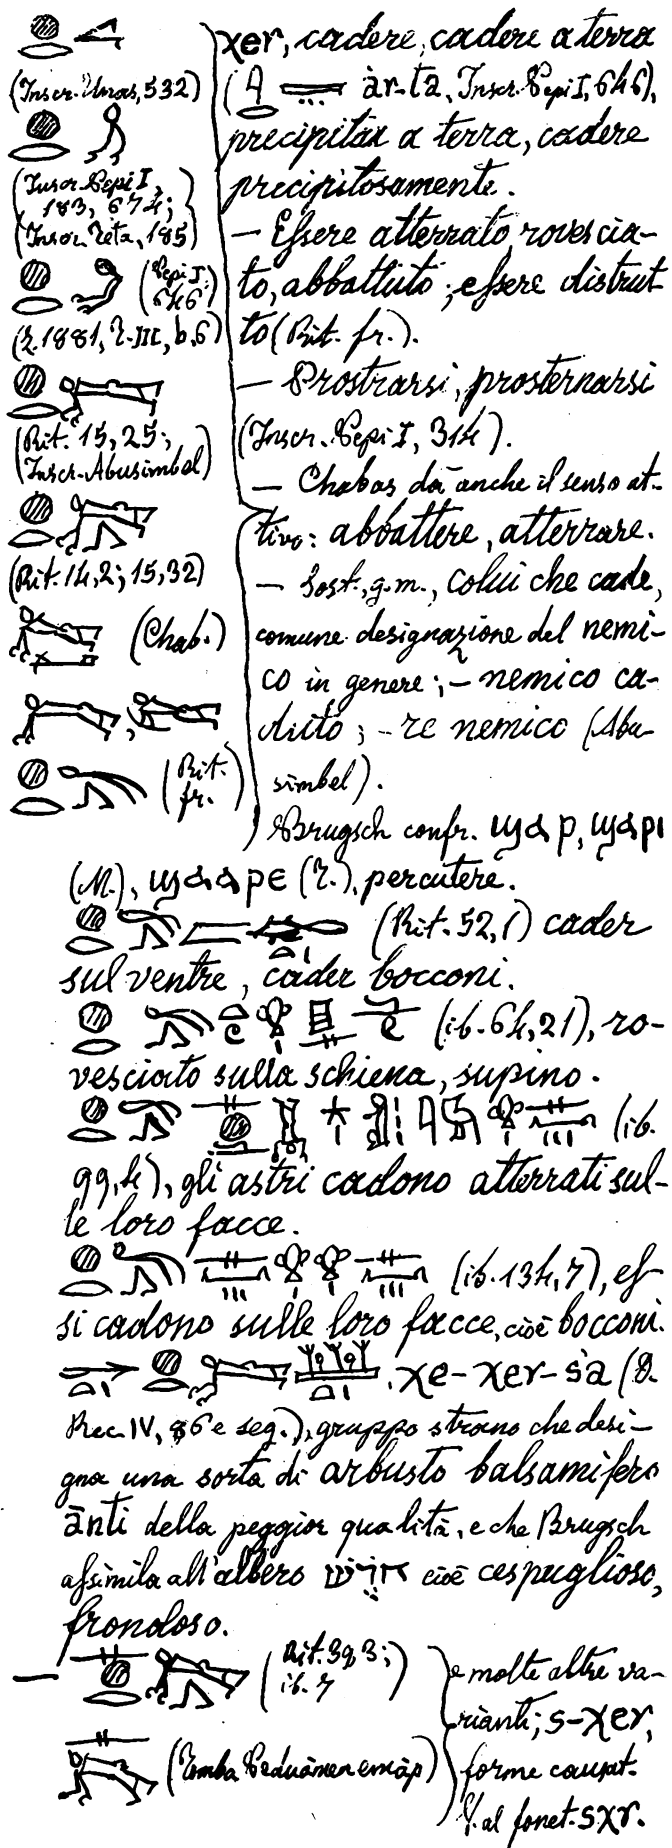 (Inscr. Unas, 532)
(Inscr. Pepi I,
183, 674;
Inscr. Teta, 185)
(Pepi I,
646)
(Z. 1881, T-III, b. 6)
(Rit. 15, 25;
Inscr. Abusimbel)
(Rit. 14, 2; 15, 32)
(Chab.)
(Rit.
fr.)
χer, cadere, cadere a terra
(àr-ta, Inscr. Pepi I, 646),
precipitar a terra, cadere
precipitosamente.
— Essere atterrato, rovescia-
to, abbattuto; essere distrut-
to (Rit. fr.).
— Prostrarsi, prosternarsi
(Inscr. Pepi I, 314).
— Chabas dà anche il senso at-
tivo: abbattere, atterrare.
— Sost. g. m., colui che cade,
comune designazione del nemi-
co in genere; — nemico ca-
duto; — re nemico (Abu-
simbel).
Brugsch confr. ϣⲁⲣ, ϣⲁⲣⲓ
(M.), ϣⲁⲁⲣⲉ (T.), percutere.
(Rit. 52, 1) cader
sul ventre, cader bocconi.
(ib. 64, 21), ro-
vesciato sulla schiena, supino.
(ib.
99, 4), gli astri cadono atterrati sul-
le loro facce.
(ib. 134, 7), es-
si cadono sulle loro facce, cioè bocconi.
χe-χer-s'a (D.
Rec. IV, 86 e seg.), gruppo strano che desi-
gna una sorta di arbusto balsamifero
ānti della peggior qualità, e che Brugsch
assimila all'albero cioè cespuglioso,
frondoso.
— (Rit. 39, 3;
ib. 7)
(Tomba Peduamenemàp)
e molte altre va-
rianti; s-χer,
forme causat.
V. al fonet. sχr.